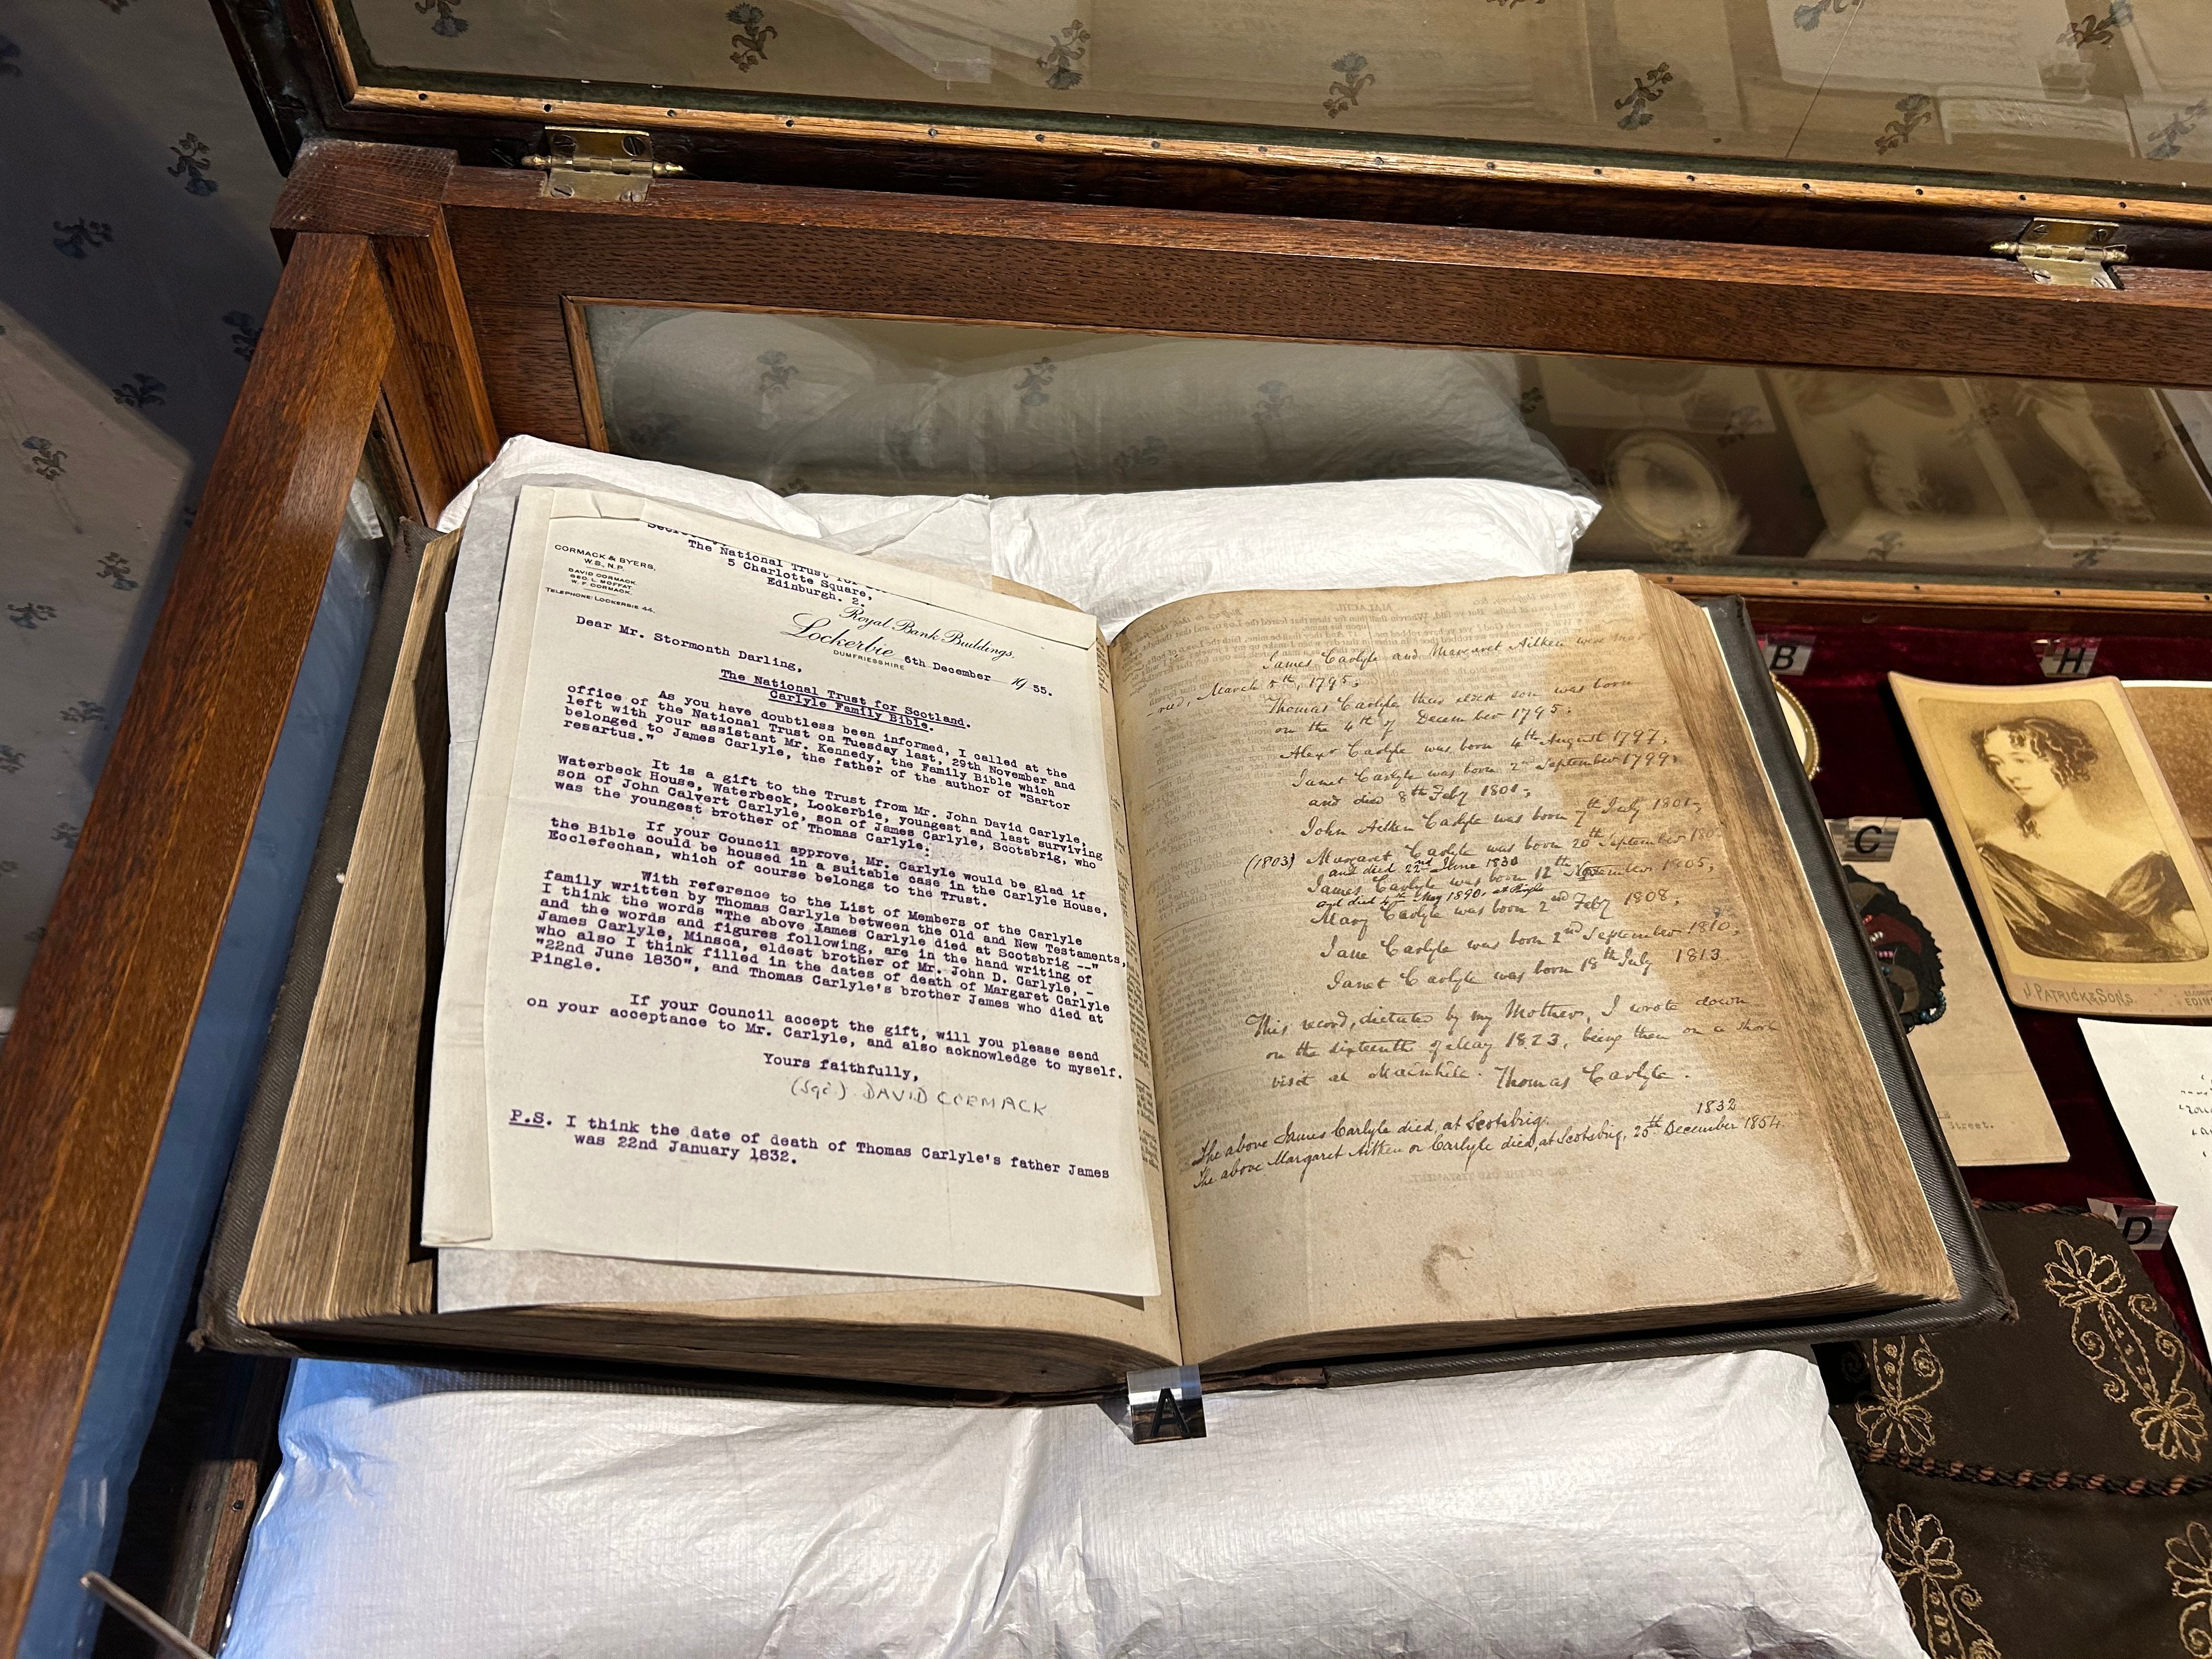 The National Trust for
5 Charlotte Square,
Edinburgh. 2.
CORMACK & BYERS,
W.S., N.P.
DAVID CORMACK.
GEO. L. MOFFAT.
W. F. CORMACK.
TELEPHONE: LOCKERBIE 44.
Royal Bank Buildings,
Lockerbie
DUMFRIESSHIRE
6th December 1955.
Dear Mr. Stormonth Darling,
The National Trust for Scotland.
Carlyle Family Bible.
As you have doubtless been informed, I called at the
office of the National Trust on Tuesday last, 29th November and
left with your assistant Mr. Kennedy, the Family Bible which
belonged to James Carlyle, the father of the author of "Sartor
resartus."
It is a gift to the Trust from Mr. John David Carlyle,
Waterbeck House, Waterbeck, Lockerbie, youngest and last surviving
son of John Calvert Carlyle, son of James Carlyle, Scotsbrig, who
was the youngest brother of Thomas Carlyle:
If your Council approve, Mr. Carlyle would be glad if
the Bible could be housed in a suitable case in the Carlyle House,
Ecclefechan, which of course belongs to the Trust.
With reference to the List of Members of the Carlyle
family written by Thomas Carlyle between the Old and New Testaments,
I think the words "The above James Carlyle died at Scotsbrig --"
and the words and figures following, are in the hand writing of
James Carlyle, Minsca, eldest brother of Mr. John D. Carlyle, -
who also I think filled in the dates of death of Margaret Carlyle
"22nd June 1830", and Thomas Carlyle's brother James who died at
Pingle.
If your Council accept the gift, will you please send
on your acceptance to Mr. Carlyle, and also acknowledge to myself.
Yours faithfully,
(Sgd.) DAVID CORMACK
P.S. I think the date of death of Thomas Carlyle's father James
was 22nd January 1832.
MALACHI.
James Carlyle and Margaret Aitken were mar-
-ried, March 5th, 1795;
Thomas Carlyle their eldest son was born
on the 4th of December 1795;
Alexr Carlyle was born 4th August 1797;
Janet Carlyle was born 2nd September 1799;
and died 8th Feby 1801;
John Aitken Carlyle was born 7th July 1801;
(1803) Margaret Carlyle was born 20th September
and died 22nd June 1830
James Carlyle was born 12th November 1805;
and died 4th May 1890, at Pingle
Mary Carlyle was born 2nd Feby 1808;
Jane Carlyle was born 2nd September 1810;
Janet Carlyle was born 18th July 1813.
This record, dictated by my Mother, I wrote down
on the sixteenth of May 1823, being then on a short
visit at Mainhill. Thomas Carlyle.
The above James Carlyle died, at Scotsbrig. 1832
The above Margaret Aitken or Carlyle died, at Scotsbrig, 25th December 1854.
A
B
H
C
J. PATRICK & SONS.
Street.
D